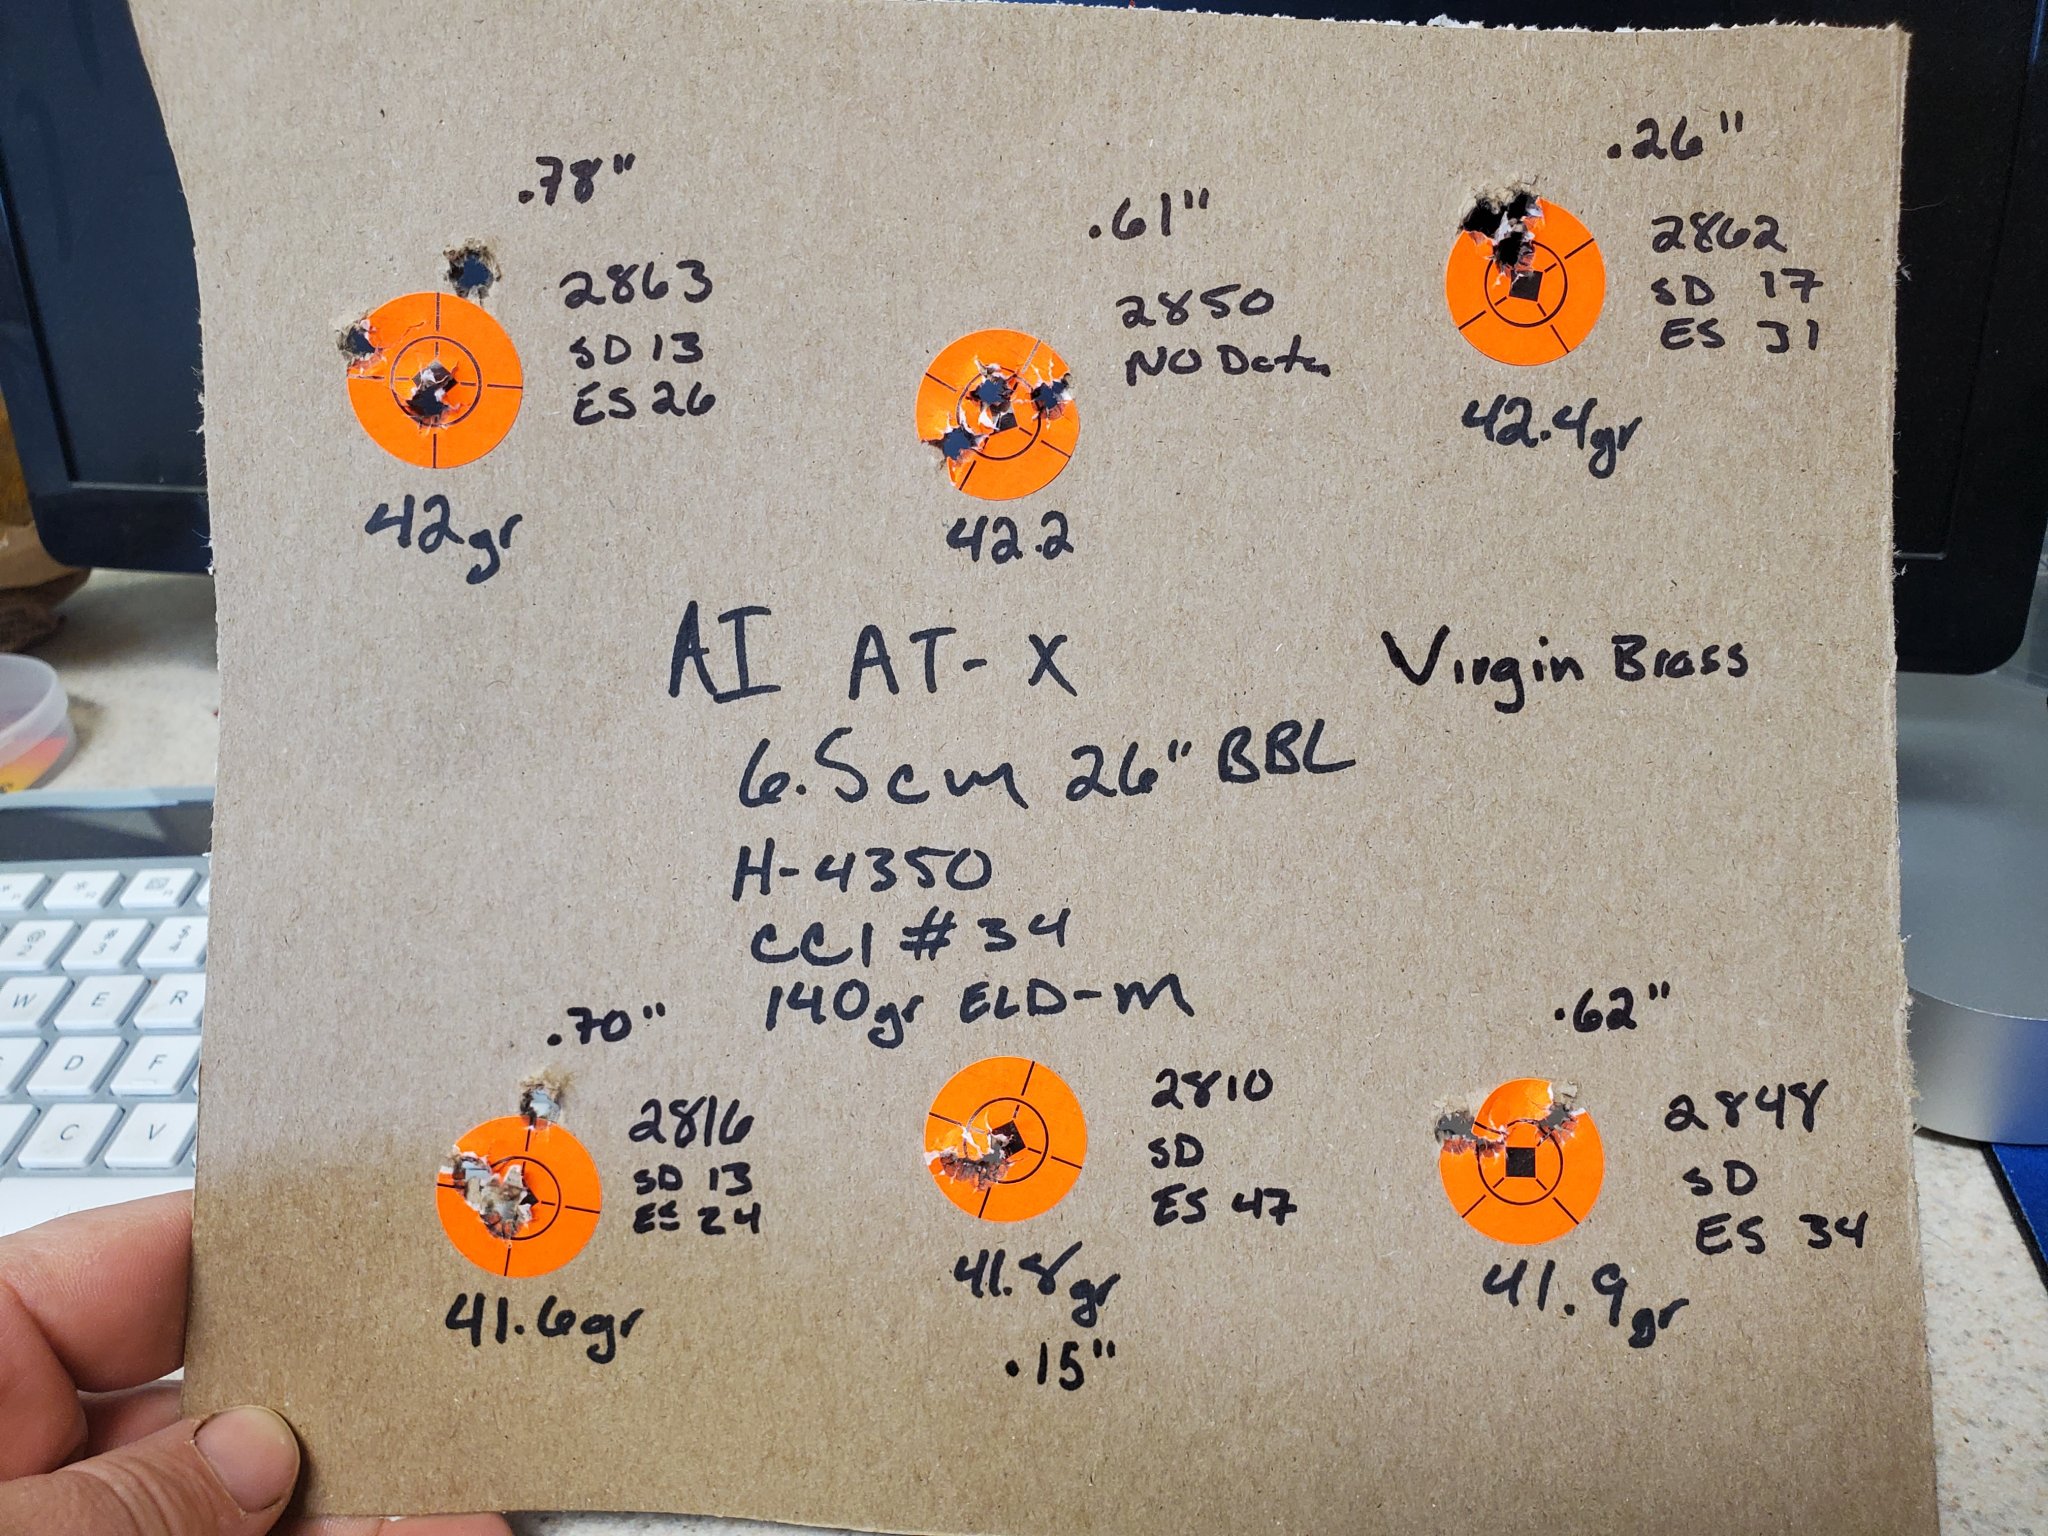 .78"
2863
SD 13
ES 26
42gr
.61"
2850
NO Data
42.2
.26"
2862
SD 17
ES 31
42.4gr
AI AT-X
Virgin Brass
6.5cm 26" BBL
H-4350
CCI #34
140gr ELD-m
.70"
2816
SD 13
ES 24
41.6gr
2810
SD
ES 47
41.8gr
.15"
.62"
2848
SD
ES 34
41.9gr
W E R
D F
C V